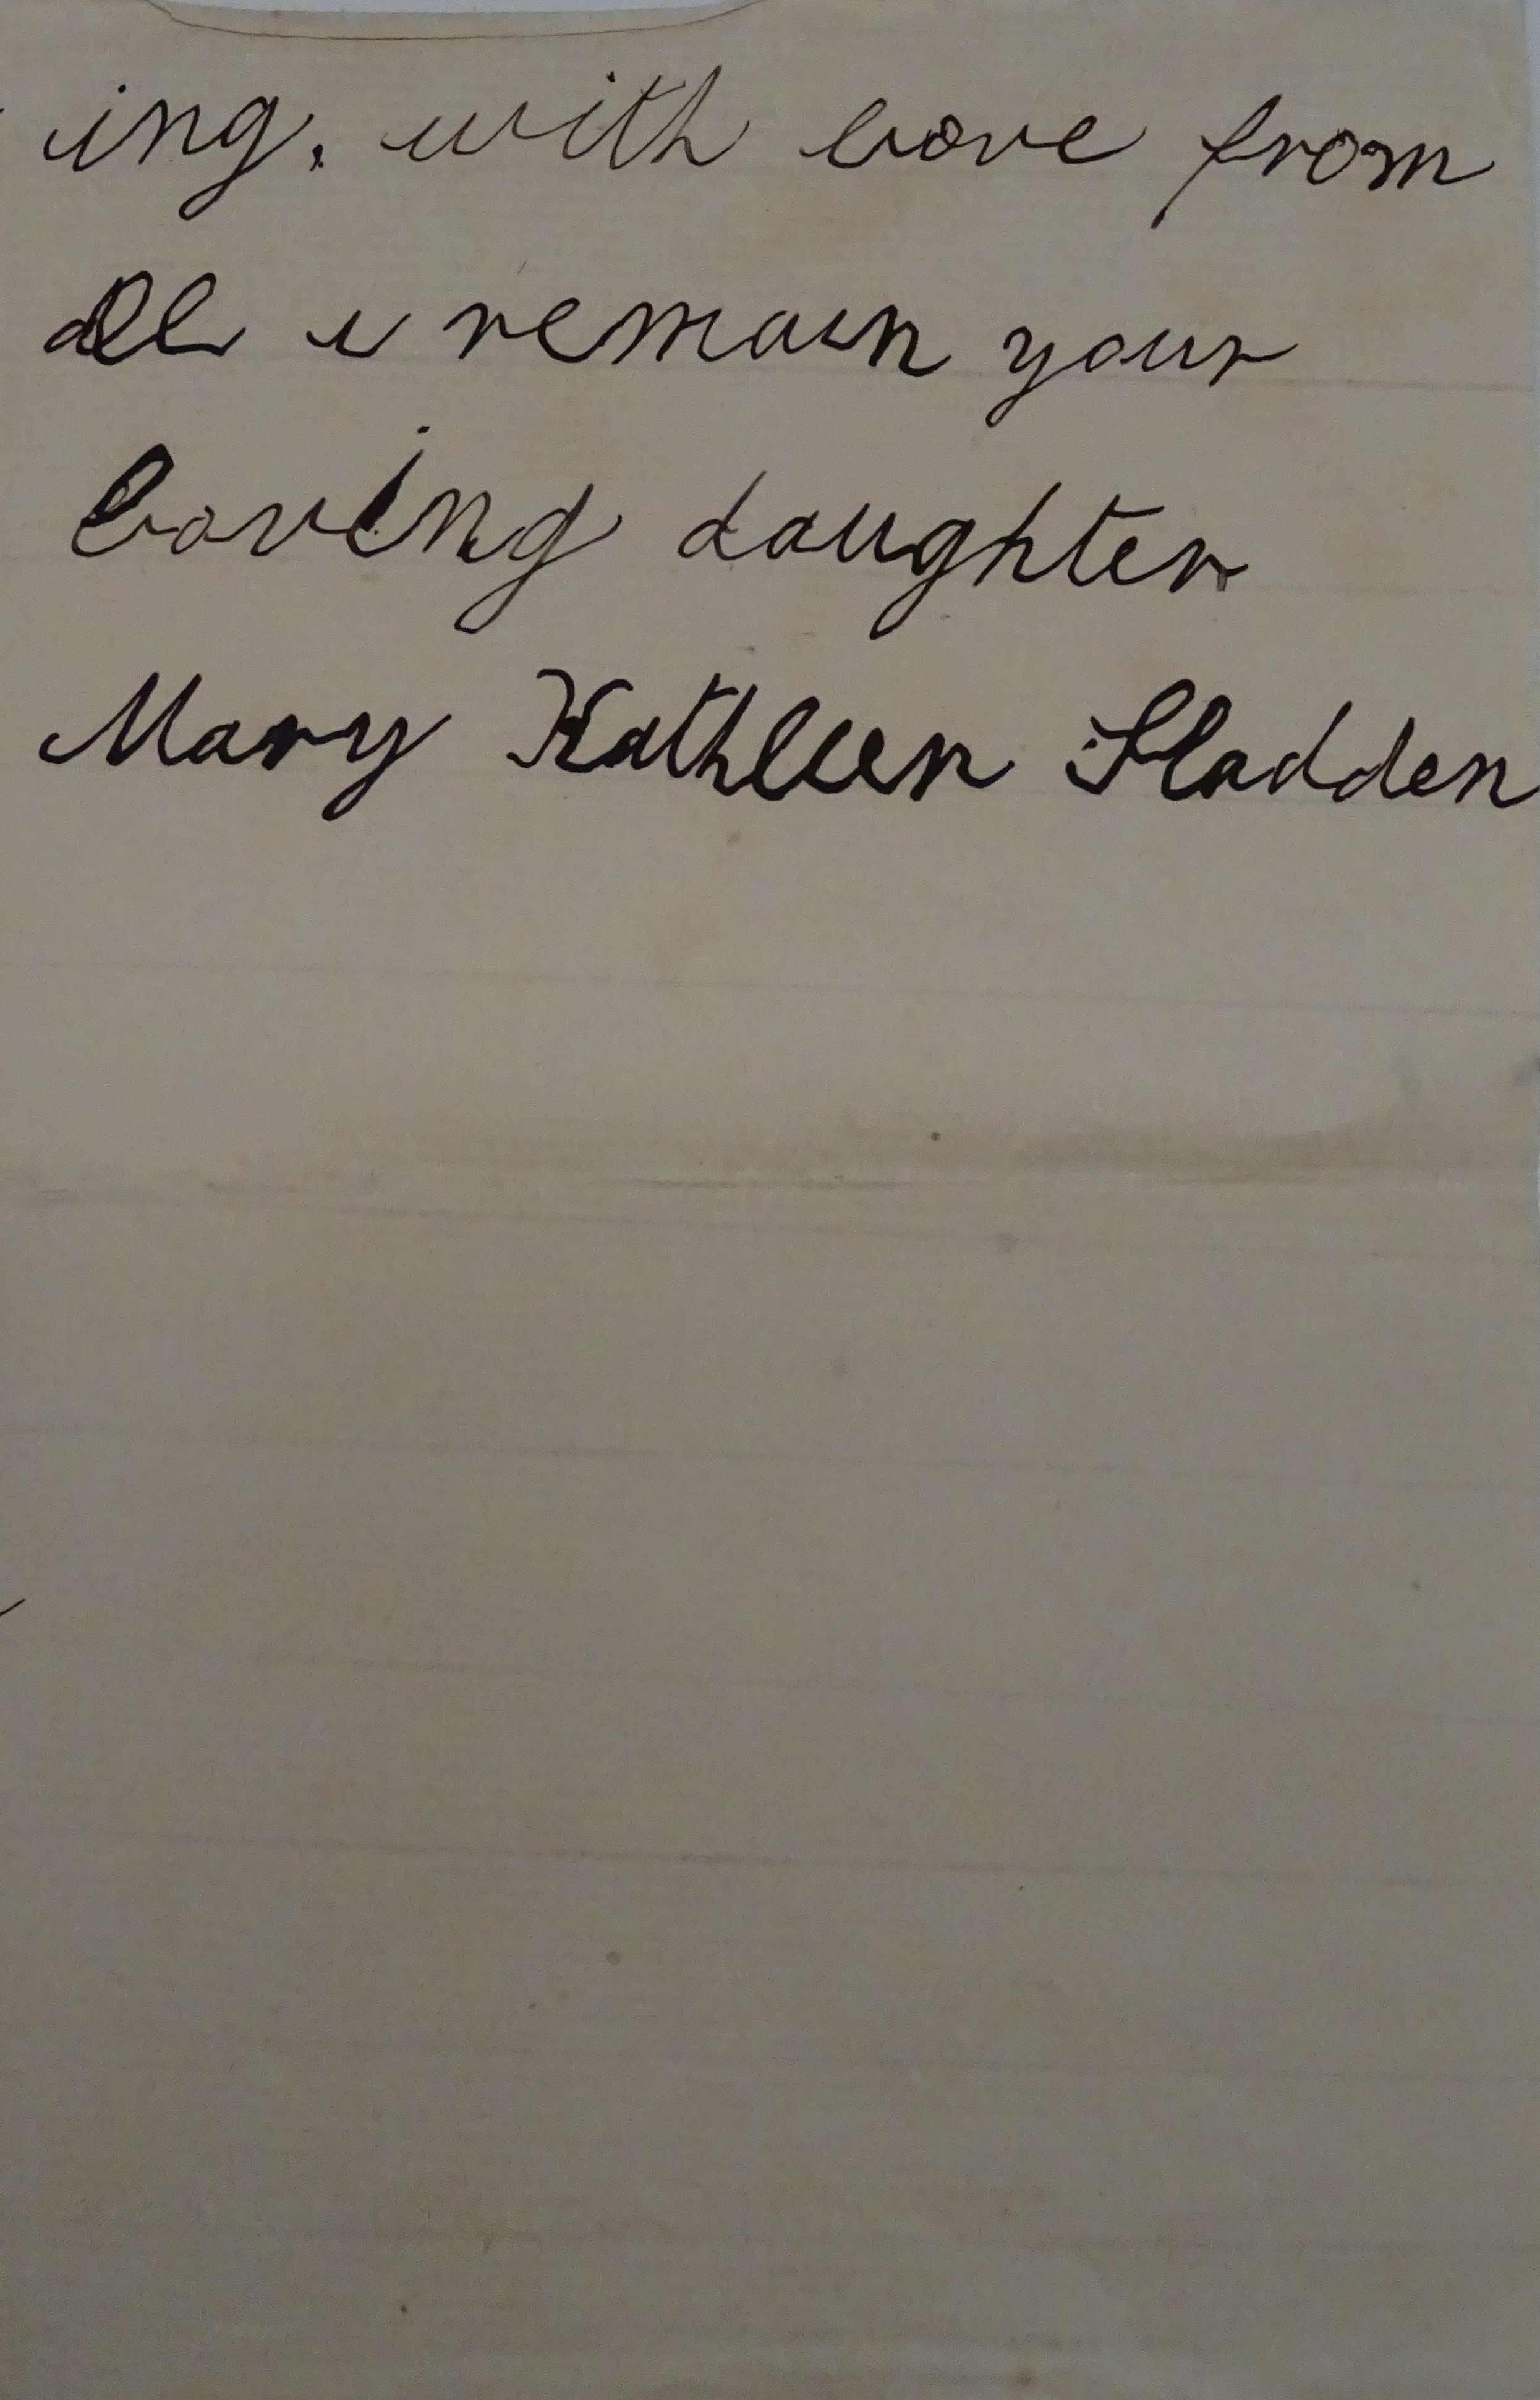 ing. with love from
all i remain your
loving daughter
Mary Kathleen Sladden